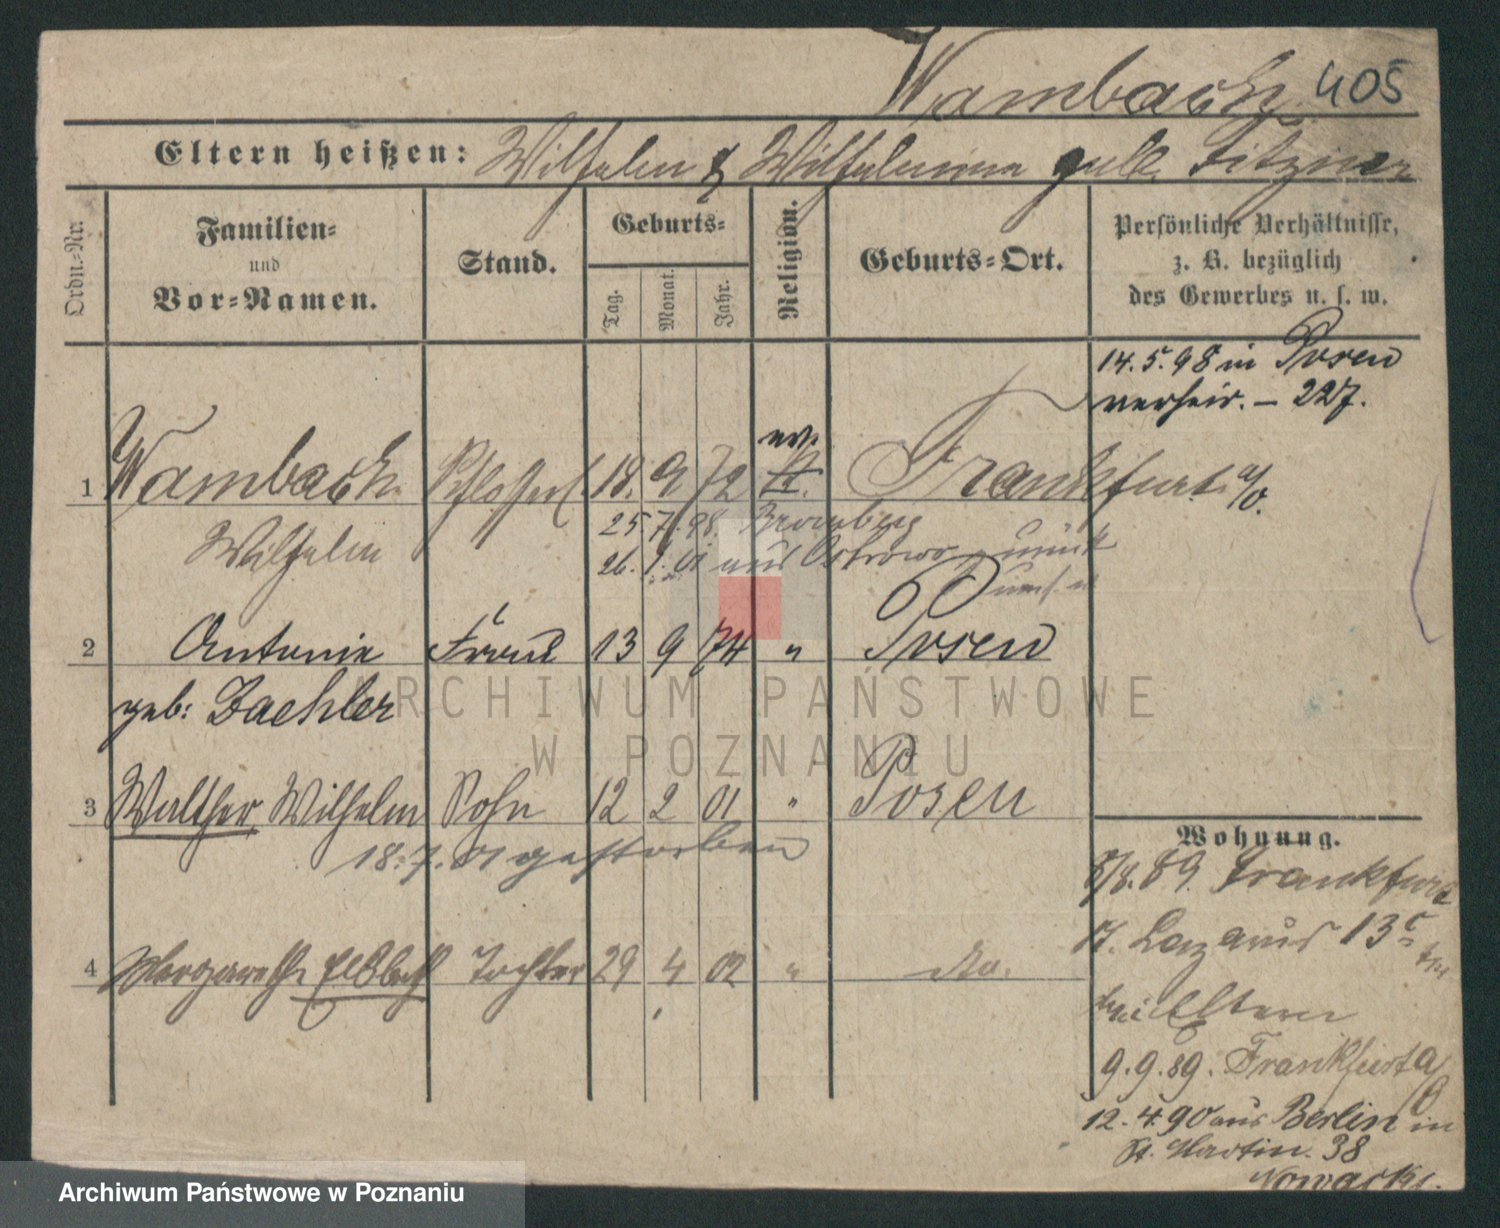 Wambach 405
Eltern heißen: Wilhelm & Wilhelmine geb. Fitzner
Ordn.-Nr.
Familien-
und
Vor-Namen.
Stand.
Geburts-
Tag.
Monat.
Jahr.
Religion.
Geburts-Ort.
Persönliche Verhältnisse,
z. B. bezüglich
des Gewerbes u. s. w.
14.5.98 in Posen
verheir. – 227.
ev.
1 Wambach Schlosserl. 18. 9 72 Frankfurt a/O.
Wilhelm
25 7. 98. Bromberg
26. 1. 01 aus Ostrowo zurück
2 Antonie Frau 13 9 74 " Posen
geb: Zaehler
3 Walther Wilhelm Sohn 12 2 01 " Posen
18.7.01 gestorben
4 Margarethe Elsbeth Tochter 29 4 02 " do.
Wohnung.
8/8. 89. Frankfurt
St. Lazarus 13c
bei Eltern
9.9.89. Frankfurt a/O
12.4.90 aus Berlin in
St. Martin 38
ARCHIWUM PAŃSTWOWE
W POZNANIU
Archiwum Państwowe w Poznaniu